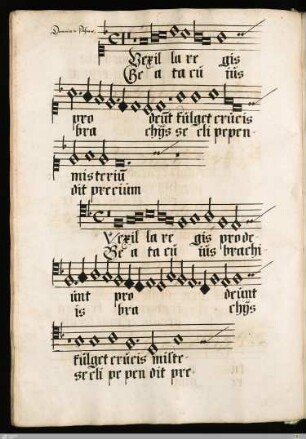 Dominica in Palmis
Vexil la re gis
Be a ta cũ iũs
pro deũt fũlget crũcis
bra chijs se cli pepen-
misteriũ
dit preciũm
Vexil la re gis prode-
Be a ta cũ iũs brachi-
ũnt pro deũnt
is bra chijs
fũlget crũcis miste-
se cli pe pen dit pre-